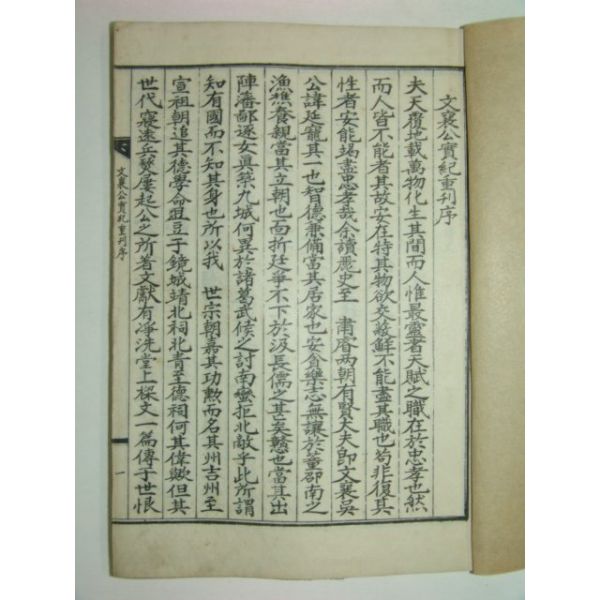 文襄公實紀重刊序
夫天覆地載萬物化生其間而人惟最靈者天賦之職在於忠孝也然
而人皆不能者其故安在特其物欲交蔽鮮不能盡其職也苟非復其
性者安能竭盡忠孝哉余讀歷史至 肅睿兩朝有賢大夫卽文襄吳
公諱延寵其一也智德兼備當其居家也安貧樂志無讓於董邵南之
漁樵養親當其立朝也面折廷爭不下於汲長孺之甚矣戇也當其出
陣潘鄙逐女眞築九城何異於諸葛武候之討南蠻拒北敵乎此所謂
知有國而不知其身也所以我 世宗朝嘉其功勲而名其州吉州至
宣祖朝追其德學命俎豆于鏡城靖北祠北靑至德祠何其偉歟但其
世代寢遠兵燹屢起公之所著文獻有淨洗堂上樑文一篇傳于世恨
文襄公實紀重刊序
一